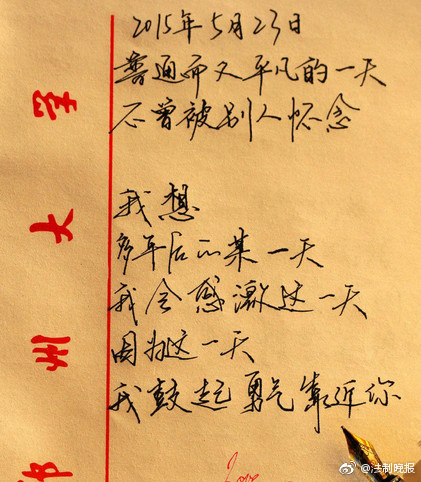 2015年5月23日
普通而又平凡的一天
不曾被别人怀念
我想
多年后的某一天
我会感激这一天
因为这一天
我鼓起勇气靠近你
郑州大学
Love
@法制晚报